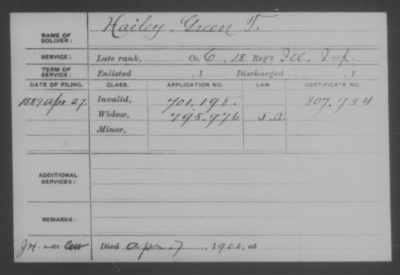 NAME OF SOLDIER: Hailey, Green T.
SERVICE: Late rank, Co. C, 18 Reg't Ill. Inf.
TERM OF SERVICE: Enlisted , 1 Discharged , 1
DATE OF FILING. CLASS. APPLICATION NO. LAW. CERTIFICATE NO.
1889 Apr. 27. Invalid, 701.198. 807.734
Widow, 795.976
Minor,
ADDITIONAL SERVICES:
REMARKS:
Died Apr. 7, at